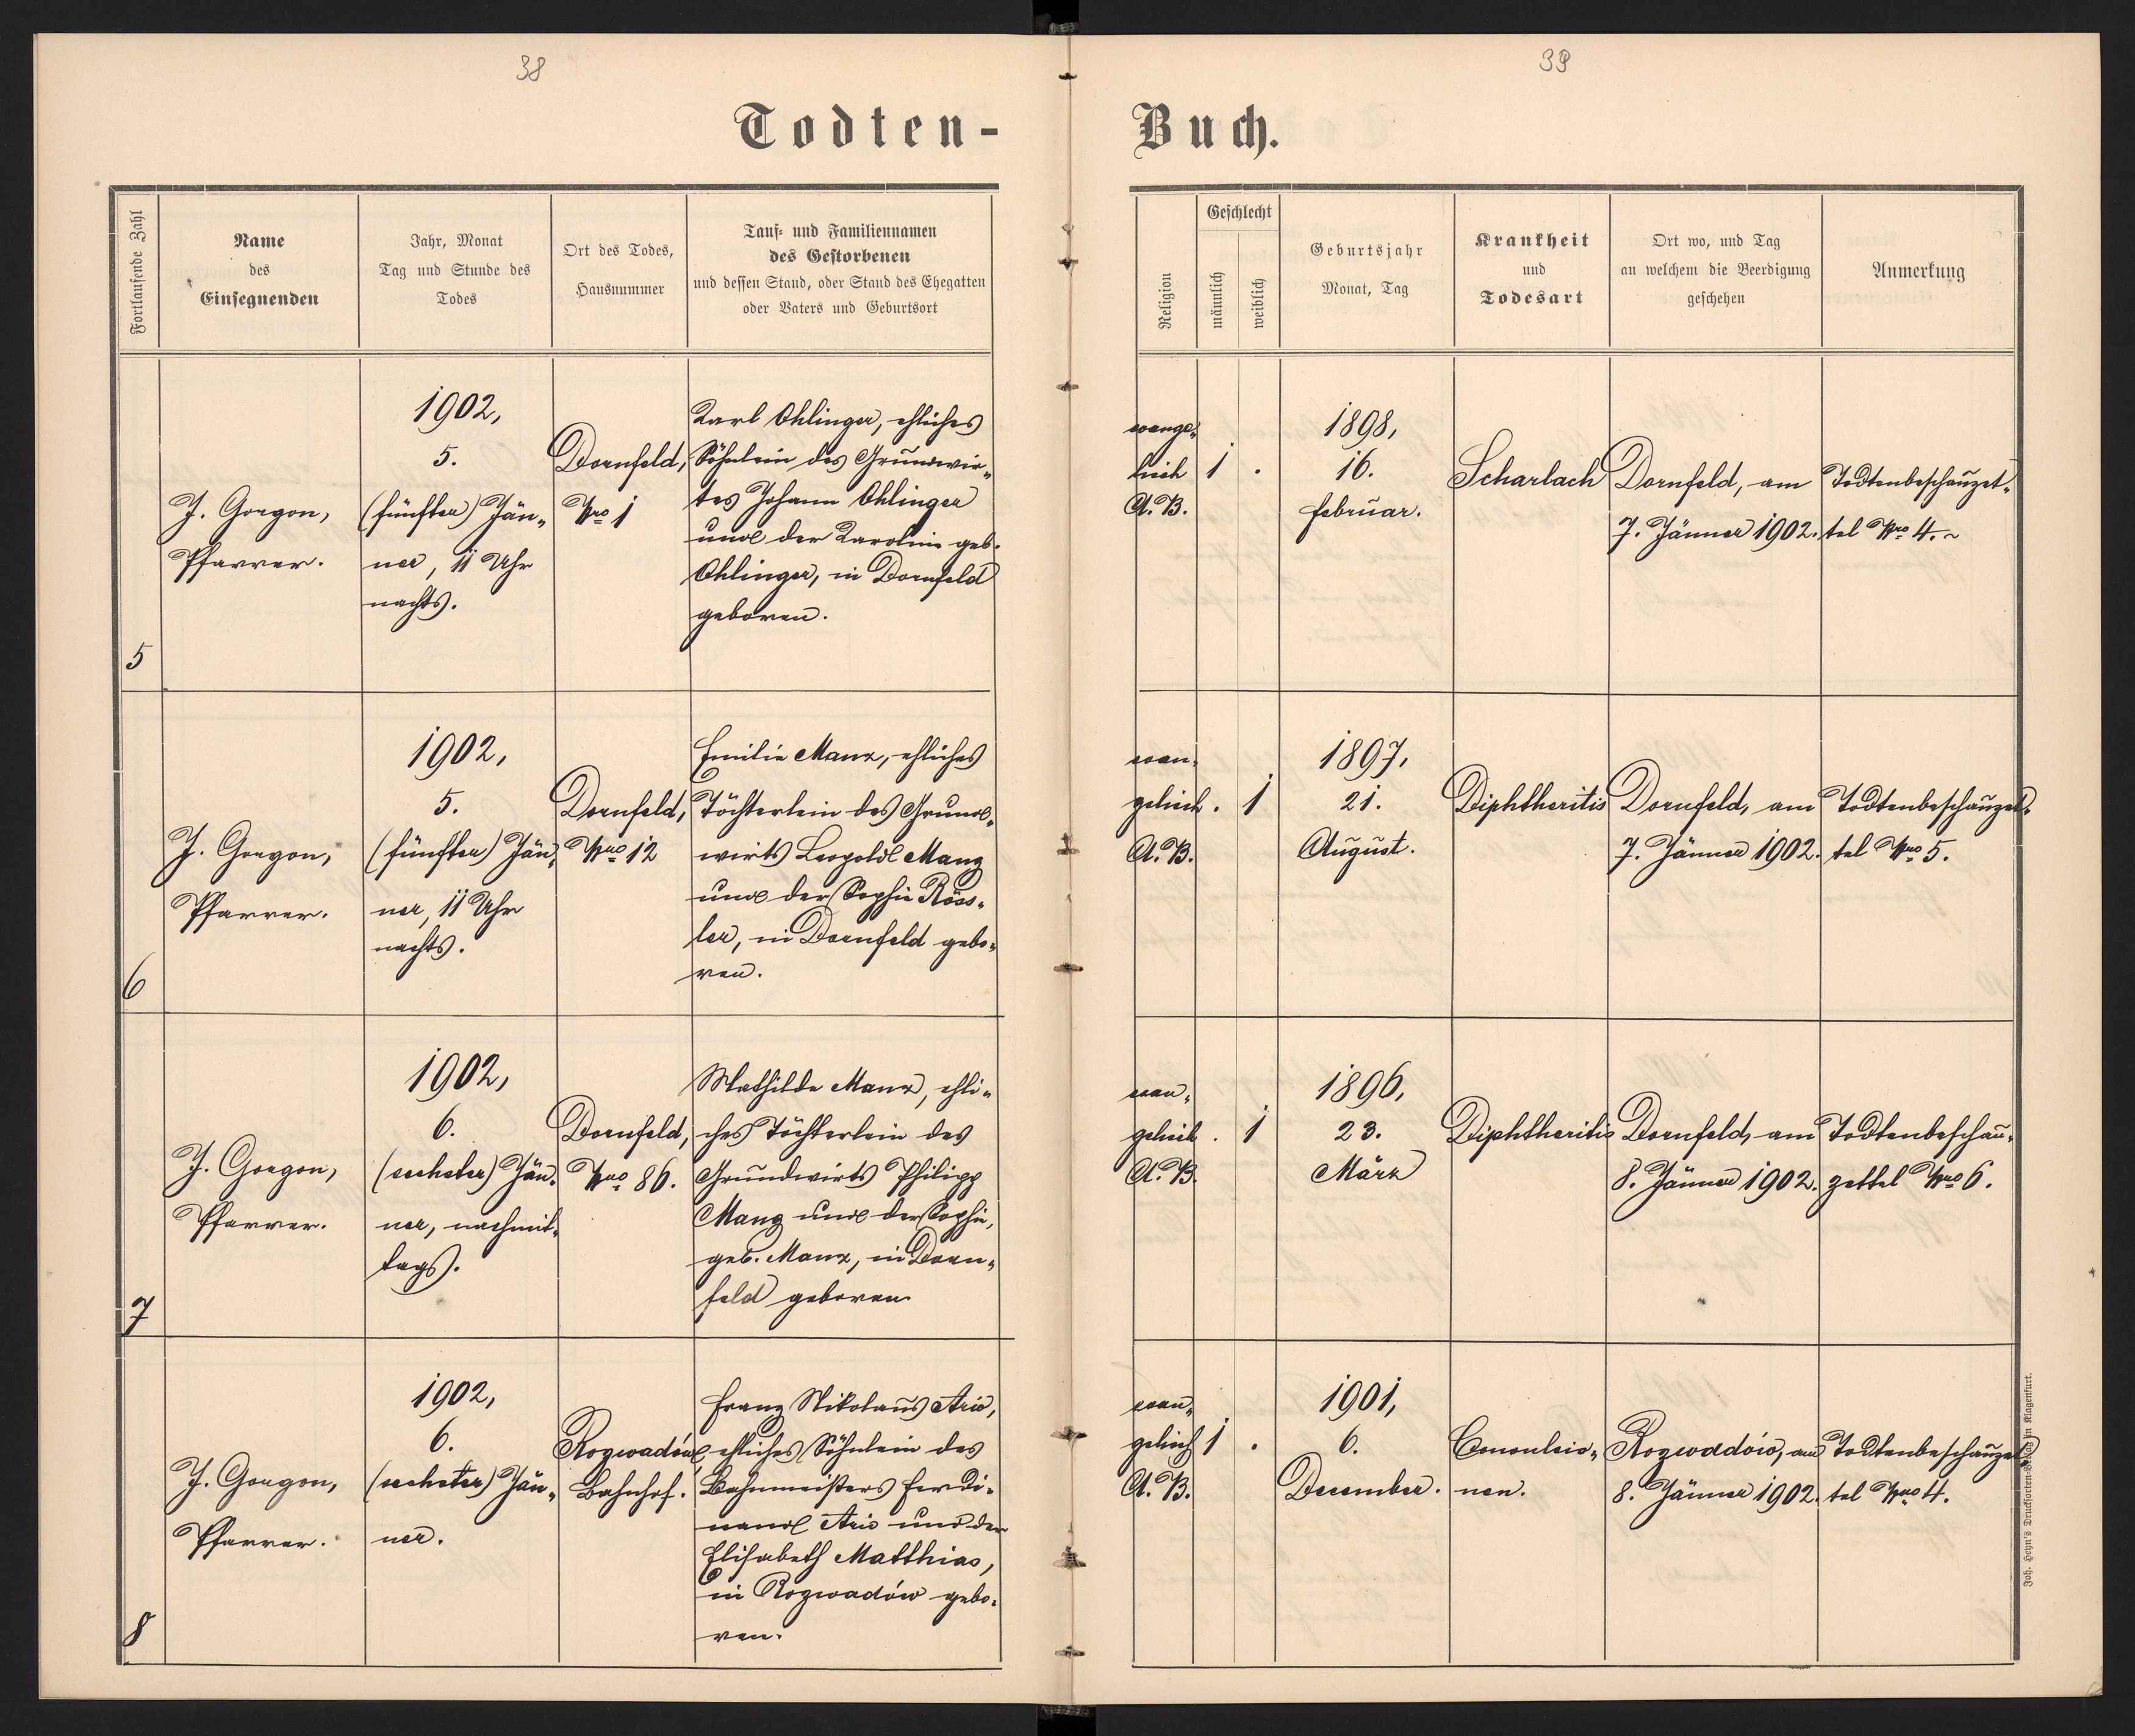 38
39
Todten-
Buch.
Fortlaufende Zahl
Name
des
Einsegnenden
Jahr, Monat
Tag und Stunde des
Todes
Ort des Todes,
Hausnummer
Tauf- und Familiennamen
des Gestorbenen
und dessen Stand, oder Stand des Ehegatten
oder Vaters und Geburtsort
Religion
Geschlecht
männlich
weiblich
Geburtsjahr
Monat, Tag
Krankheit
und
Todesart
Ort wo, und Tag
an welchem die Beerdigung
geschehen
Anmerkung
5
J. Gorgon,
Pfarrer.
1902,
5.
(fünften) Jän-
ner, 11 Uhr
nachts.
Dornfeld,
Nro 1
Karl Ohlinger, ehliches
Söhnlein des Grundwir-
tes Johann Ohlinger
und der Karolina geb.
Ohlinger, in Dornfeld
geboren.
evange-
lisch
A. B.
1
.
1898,
16.
Februar.
Scharlach
Dornfeld, am
7. Jänner 1902.
Todtenbeschauzet-
tel Nro 4.
6
J. Gorgon,
Pfarrer.
1902,
5.
(fünften) Jän-
ner, 11 Uhr
nachts.
Dornfeld,
Nro 12
Emilie Manz, ehliches
Töchterlein des Grund-
wirts Leopold Manz
und der Sophie Röss-
ler, in Dornfeld gebo-
ren.
evan-
gelisch
A. B.
.
1
1897,
21.
August.
Diphtheritis
Dornfeld, am
7. Jänner 1902.
Todtenbeschauzet-
tel Nro 5.
7
J. Gorgon,
Pfarrer.
1902,
6.
(sechster) Jän-
ner, nachmit-
tags.
Dornfeld,
Nro 86.
Mathilde Manz, ehli-
ches Töchterlein des
Grundwirts Philipp
Manz und der Sophie,
geb. Manz, in Dorn-
feld geboren
evan-
gelisch
A. B.
.
1
1896,
23.
März
Diphtheritis
Dornfeld, am
8. Jänner 1902.
Todtenbeschau-
zettel Nro 6.
8
J. Gorgon,
Pfarrer.
1902,
6.
(sechster) Jän-
ner.
Rozwadów,
Bahnhof.
Franz Nikolaus
ehliches Söhnlein des
Bahnmeisters Ferdi-
nand und der
Elisabeth Matthias,
in Rozwadów gebo-
ren.
evan-
gelisch
A. B.
1
.
1901,
6.
December.
Convulsio-
nen.
Rozwadów, am
8. Jänner 1902.
Todtenbeschauzet-
tel Nro 4.
Joh. Heyn's Drucksorten-Verlag in Klagenfurt.